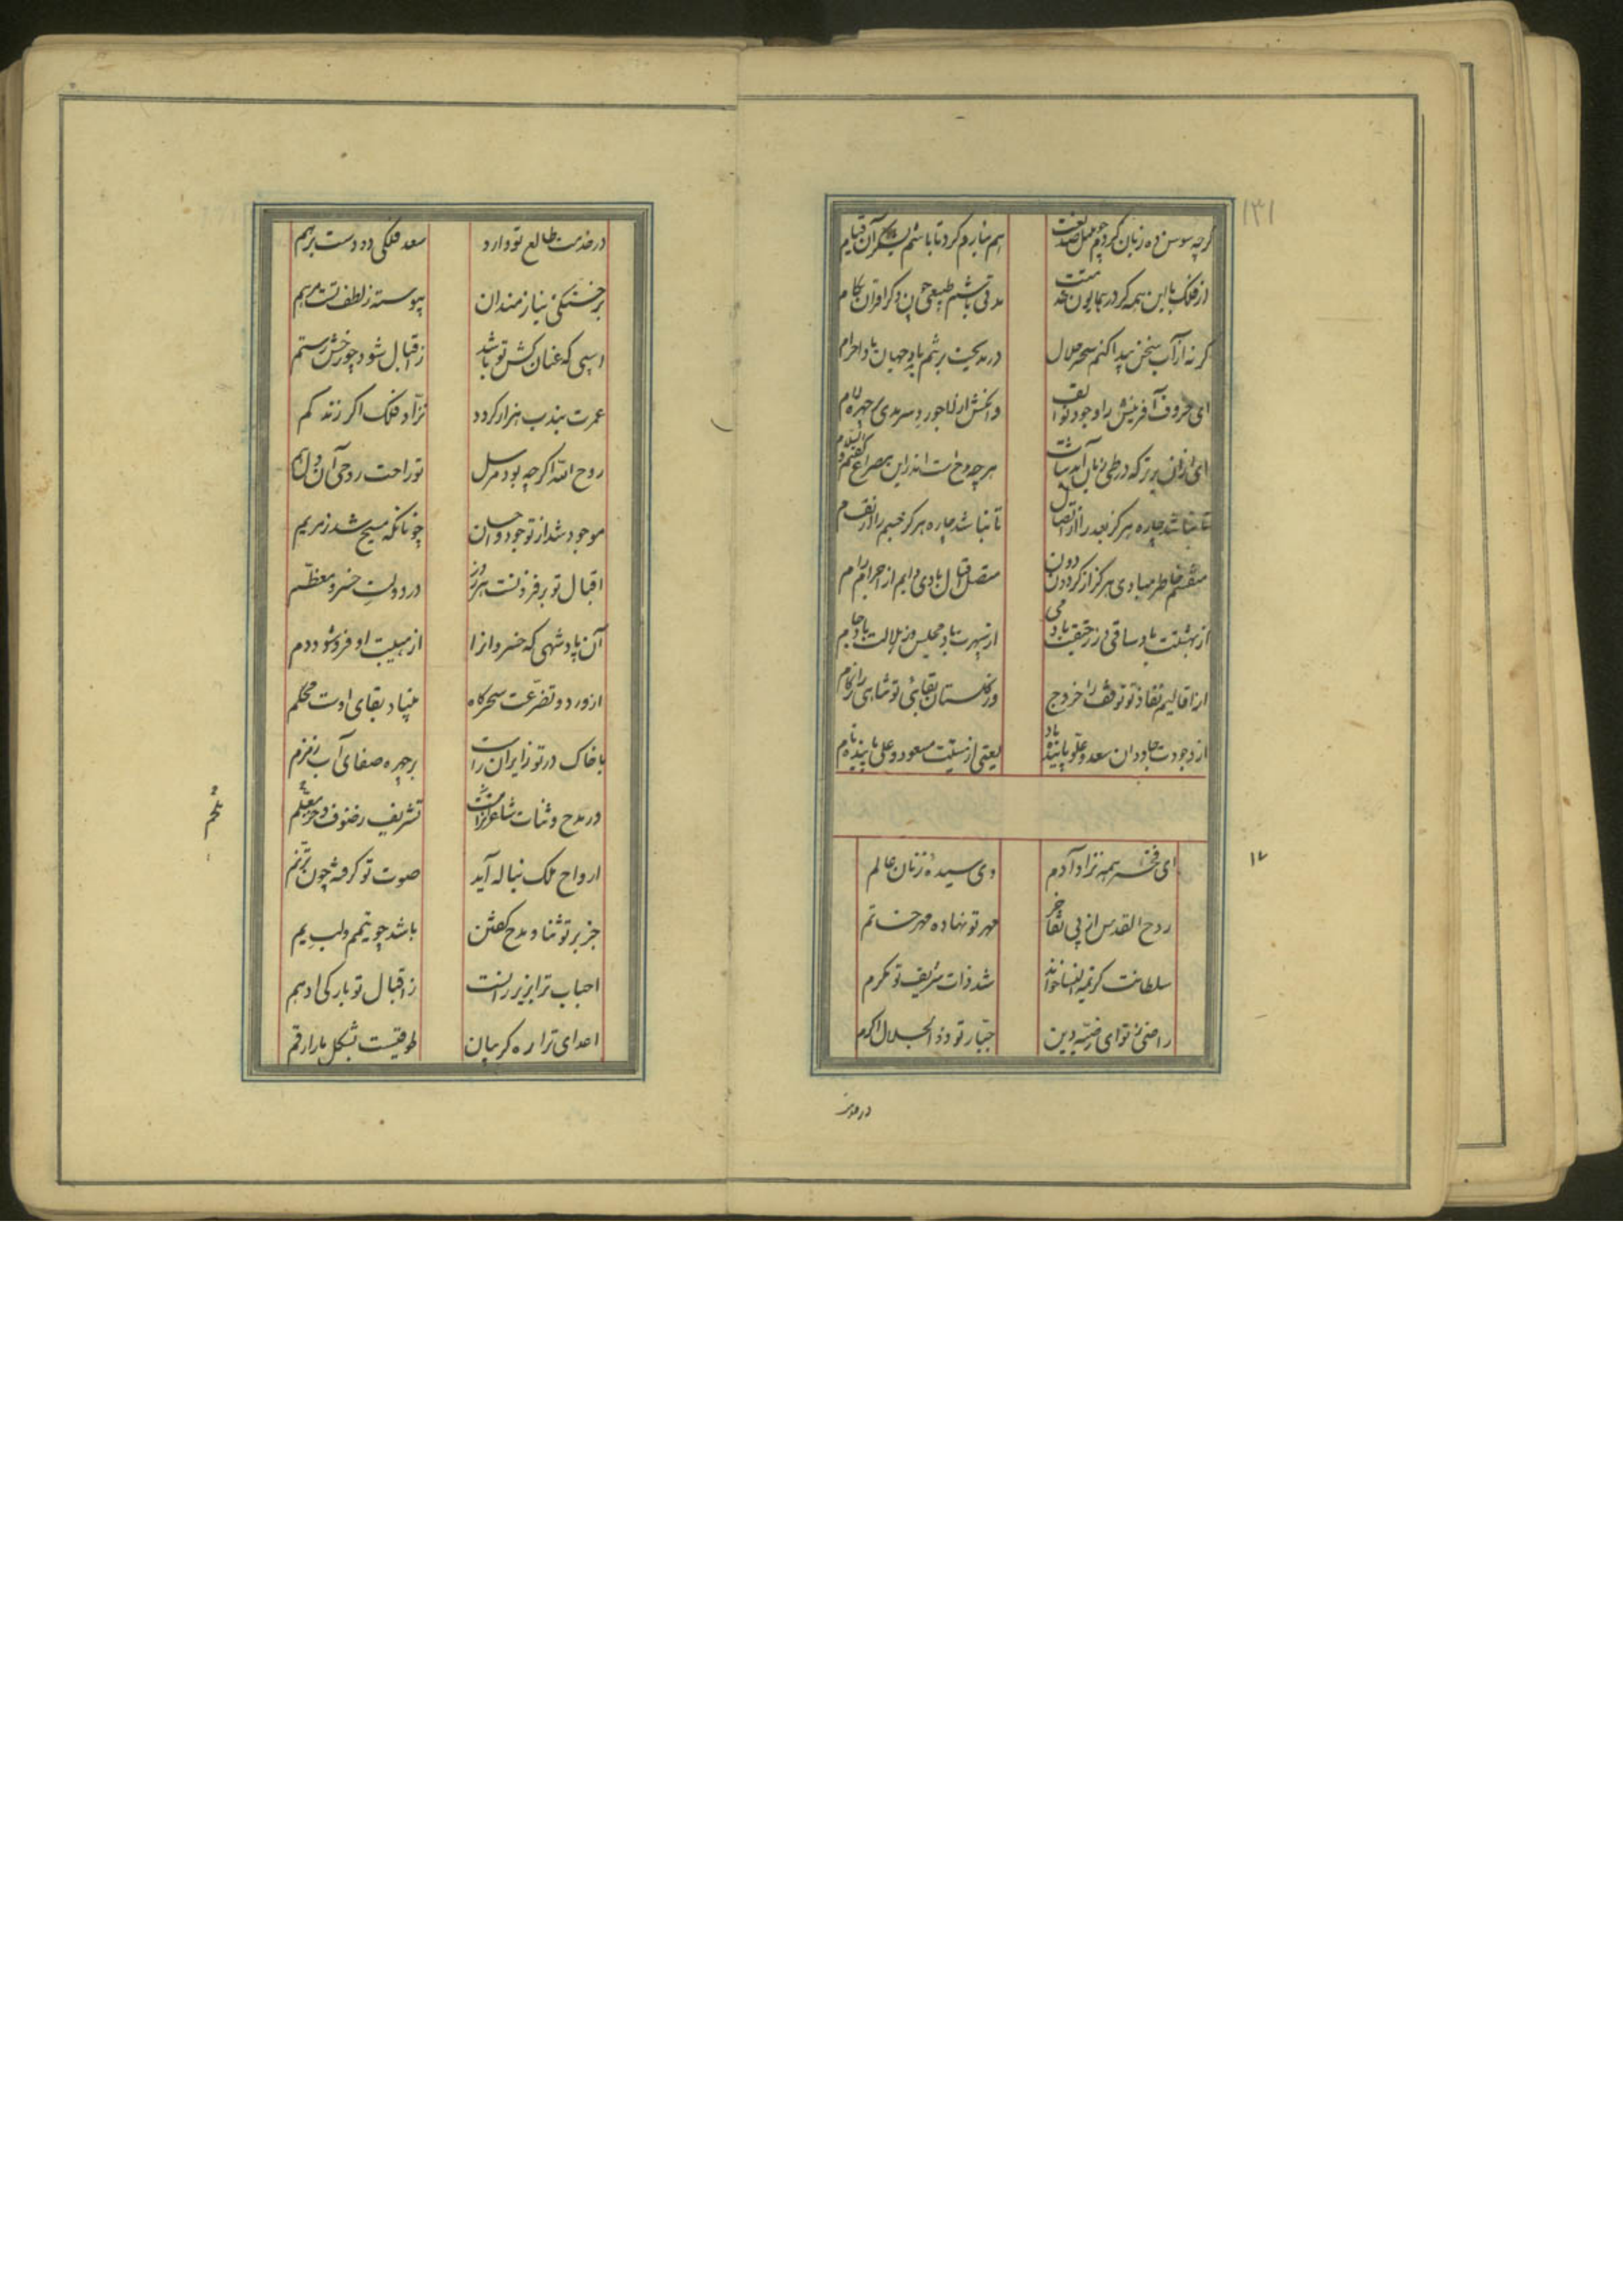 ۱۳۱
گرچه سوسن ده زبان گردم چو مثل صفت
هم نیارم کرد تا باشم بشکر آن قیام
از فلک با این همه کر در همایون خدمتت
مدتی باشم طبیعی چون دگر اقران بکام
گر نه از آب سخن پیدا کنم سحر حلال
در مدیحت بر تنم باد جهان بادا حرام
ای حروف آفرینش را وجود تو الف
هرچه مدح است اندر این مصراع گفتم والسلام
تا نباشد چاره هرگز بعد را از اتصال
تا نباشد چاره هرگز جسم را از انقسام
منقسم خاطر مبادی هرگز از گردون دون
متصل اقبال بادی دایم از اجرام رام
از بهشتت باد ساقی وز رحیقت باد می
از سپهرت باد مجلس وز هلالت باد جام
از اقالیم نفاذ تو توقف را خروج
در گلستان بقای تو تناهی را زکام
از وجودت جاودان سعد و علو پاینده باد
یعنی از نسبت مسعود و علی پاینده نام
ای فخر همه نژاد آدم
وی سیده زنان عالم
۱۷
روح القدس از پی تفاخر
مهر تو نهاده مهر خاتم
سلطانت کریمة النسا خواند
شد ذات شریف تو مکرم
راضی ز تو ای رضیه دین
جبار تو ذوالجلال اکرم
در خدمت طالع تو دارد
سعد فلکی دو دست برهم
بر خستگی نیازمندان
پیوسته ز لطف تست مرهم
اسپی که عنان کش تو باشد
ز اقبال شود چو رخش رستم
عمرت بنذب هزار گردد
نراد فلک اگر زند کم
روح الله اگر چه بود مرسل
تو راحت روحی آن دل هم
موجود شد از تو جود و احسان
چونانکه مسیح شد ز مریم
اقبال تو بر فزونست هر روز
در دولت خسرو معظم
آن پادشهی که خسروان را
از هیبت او فرو شود دم
از ورد و تضرعت سحرگاه
بنیاد بقای اوست محکم
با خاک در تو زایران را
بر چهره صفای آب زمزم
در مدح و ثنات شاعران راست
تشریف رضوف و خز معلم
ارواح ملک بناله آید
صوت تو گرفته چون ترنم
جز بر تو ثنا و مدح گفتن
باشد چو تیمم و لب یم
احباب ترا بزیر رانست
ز اقبال تو بارگی ادهم
اعدای ترا ره گریبان
طوقیست بشکل مار ارقم